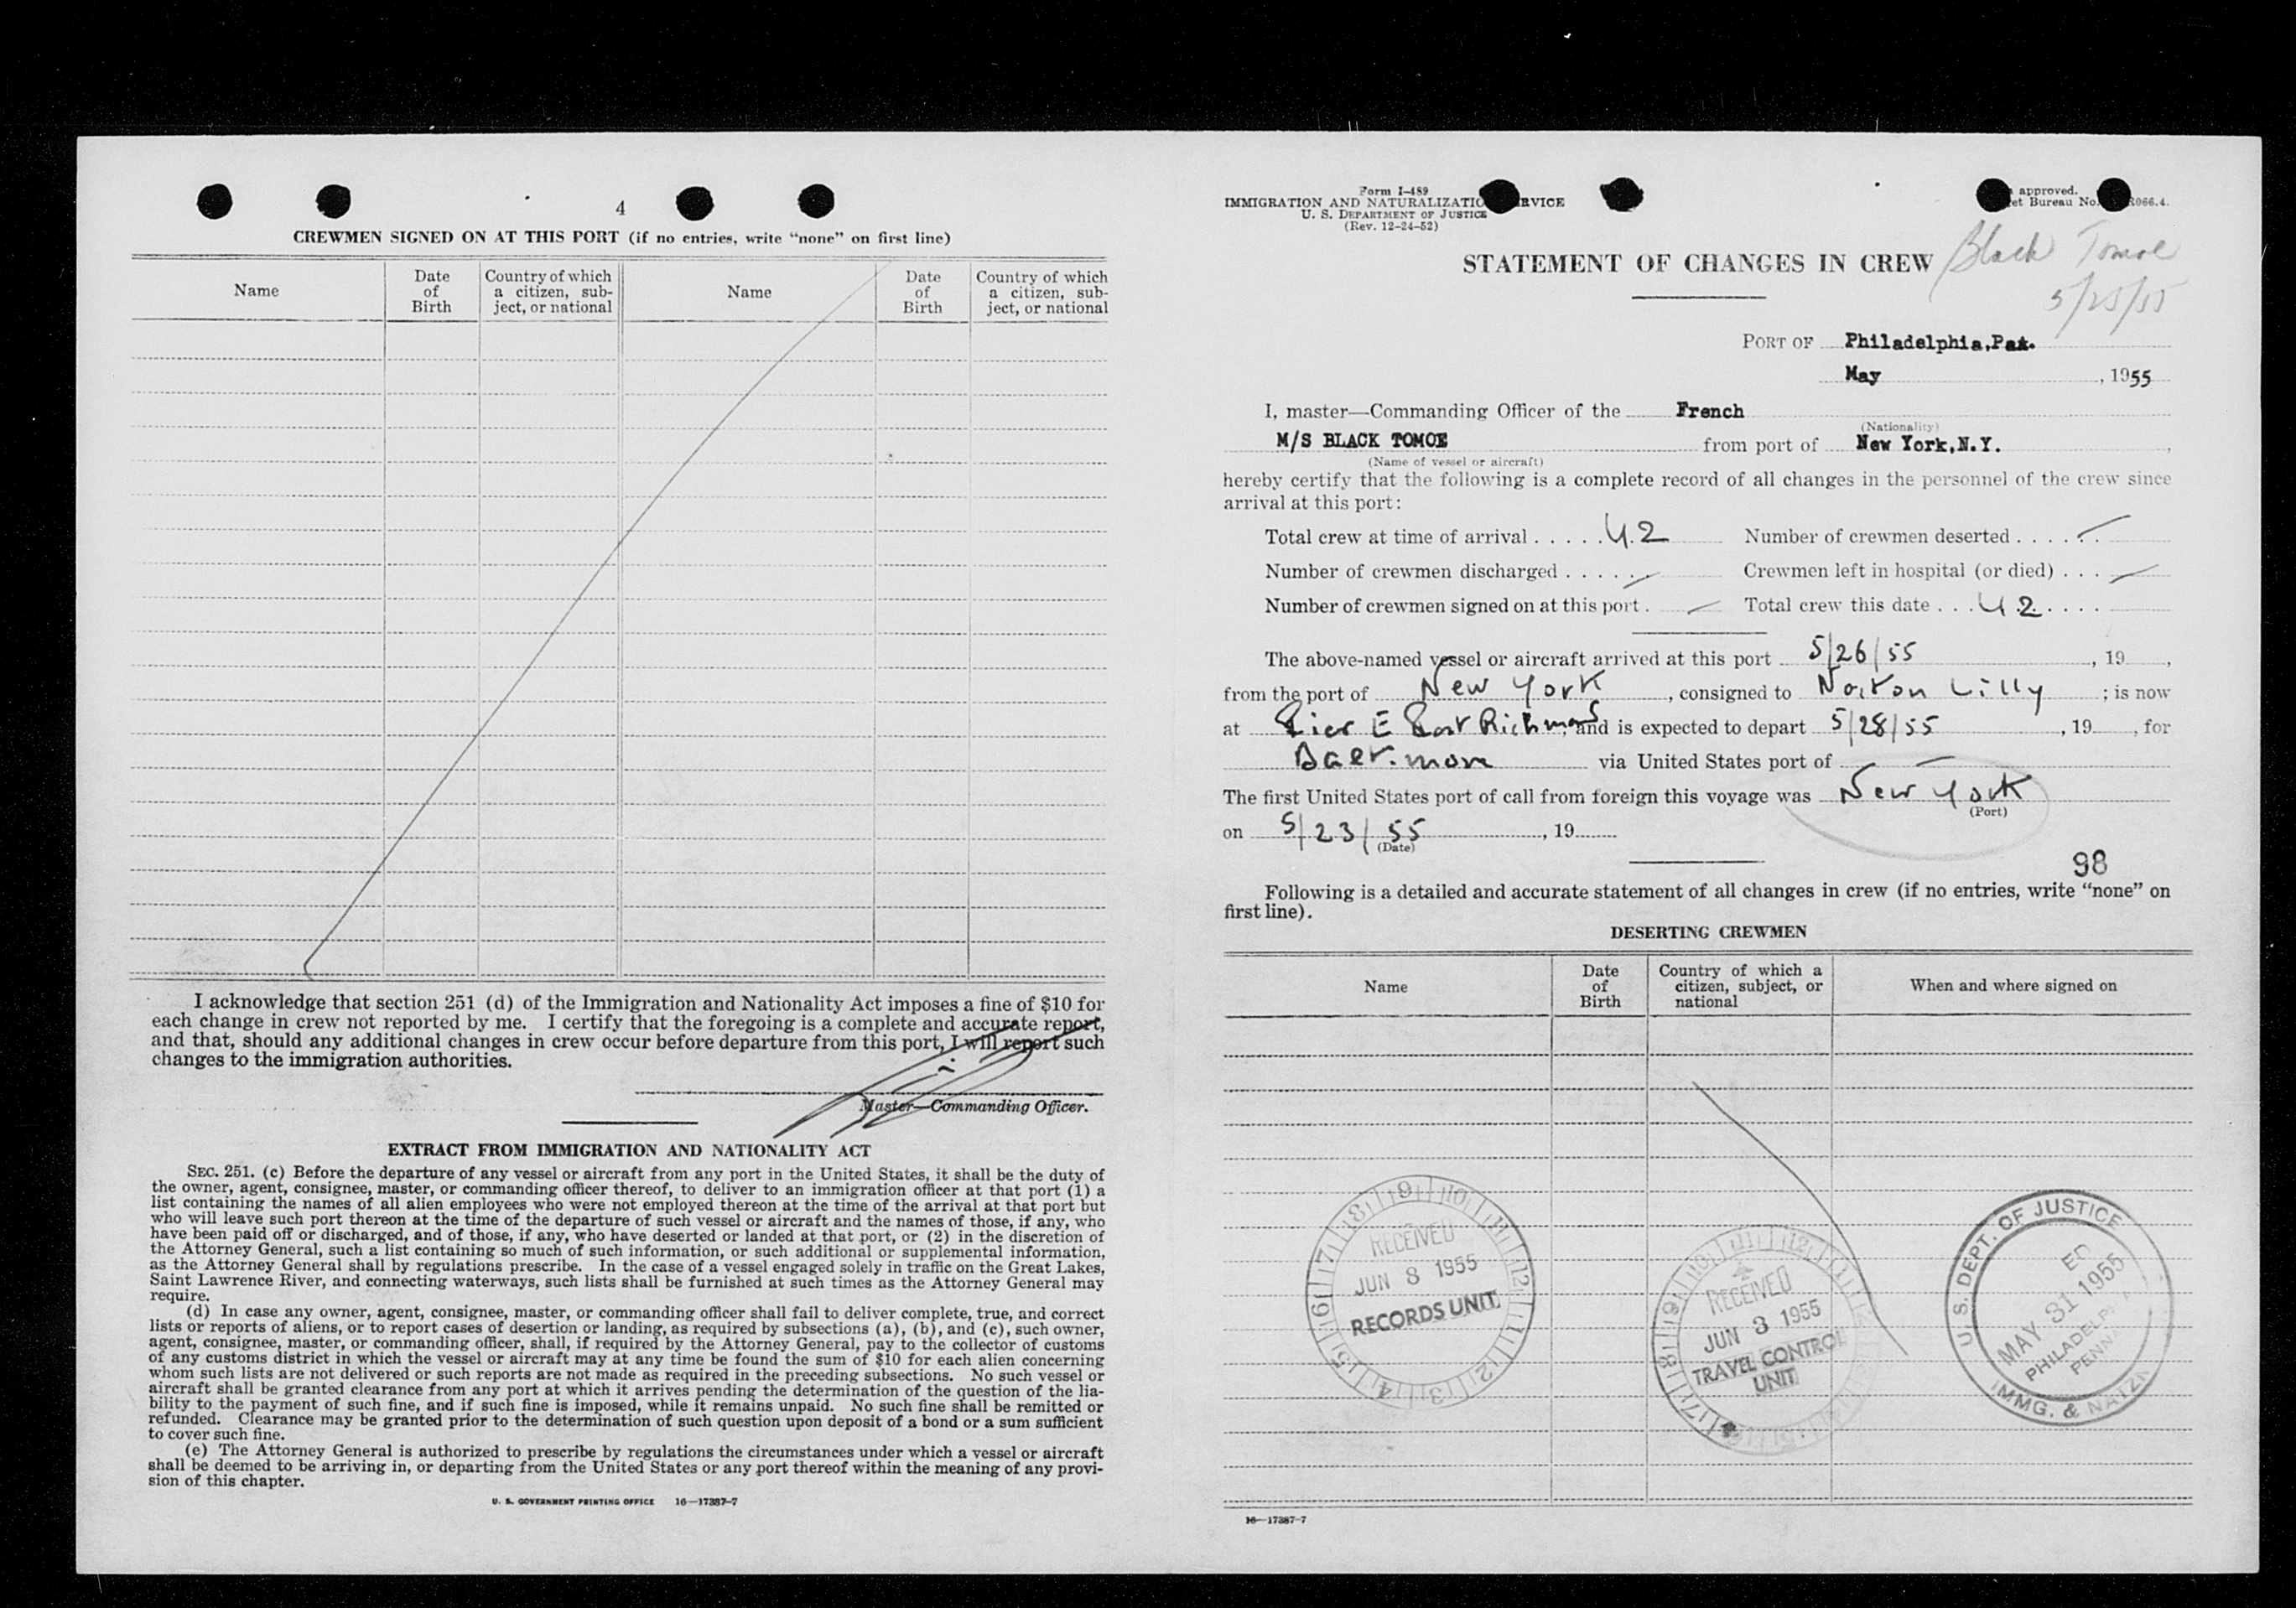 4
CREWMEN SIGNED ON AT THIS PORT (if no entries, write "none" on first line)
Name
Date of Birth
Country of which a citizen, subject, or national
Name
Date of Birth
Country of which a citizen, subject, or national
I acknowledge that section 251 (d) of the Immigration and Nationality Act imposes a fine of $10 for
each change in crew not reported by me. I certify that the foregoing is a complete and accurate report,
and that, should any additional changes in crew occur before departure from this port, I will report such
changes to the immigration authorities.
Master—Commanding Officer.
EXTRACT FROM IMMIGRATION AND NATIONALITY ACT
SEC. 251. (c) Before the departure of any vessel or aircraft from any port in the United States, it shall be the duty of
the owner, agent, consignee, master, or commanding officer thereof, to deliver to an immigration officer at that port (1) a
list containing the names of all alien employees who were not employed thereon at the time of the arrival at that port but
who will leave such port thereon at the time of the departure of such vessel or aircraft and the names of those, if any, who
have been paid off or discharged, and of those, if any, who have deserted or landed at that port, or (2) in the discretion of
the Attorney General, such a list containing so much of such information, or such additional or supplemental information,
as the Attorney General shall by regulations prescribe. In the case of a vessel engaged solely in traffic on the Great Lakes,
Saint Lawrence River, and connecting waterways, such lists shall be furnished at such times as the Attorney General may
require.
(d) In case any owner, agent, consignee, master, or commanding officer shall fail to deliver complete, true, and correct
lists or reports of aliens, or to report cases of desertion or landing, as required by subsections (a), (b), and (c), such owner,
agent, consignee, master, or commanding officer, shall, if required by the Attorney General, pay to the collector of customs
of any customs district in which the vessel or aircraft may at any time be found the sum of $10 for each alien concerning
whom such lists are not delivered or such reports are not made as required in the preceding subsections. No such vessel or
aircraft shall be granted clearance from any port at which it arrives pending the determination of the question of the lia-
bility to the payment of such fine, and if such fine is imposed, while it remains unpaid. No such fine shall be remitted or
refunded. Clearance may be granted prior to the determination of such question upon deposit of a bond or a sum sufficient
to cover such fine.
(e) The Attorney General is authorized to prescribe by regulations the circumstances under which a vessel or aircraft
shall be deemed to be arriving in, or departing from the United States or any port thereof within the meaning of any provi-
sion of this chapter.
U. S. GOVERNMENT PRINTING OFFICE 16—17387-7
Form I-489
IMMIGRATION AND NATURALIZATIO RVICE
U. S. DEPARTMENT OF JUSTICE
(Rev. 12-24-52)
approved.
et Bureau No. R066.4.
STATEMENT OF CHANGES IN CREW
Black Tomoe
5/25/55
PORT OF Philadelphia,Pa.
May , 1955
I, master—Commanding Officer of the French
(Nationality)
M/S BLACK TOMOE from port of New York,N.Y.
(Name of vessel or aircraft)
hereby certify that the following is a complete record of all changes in the personnel of the crew since
arrival at this port:
Total crew at time of arrival . . . . . 42 Number of crewmen deserted . . . . . —
Number of crewmen discharged . . . . . — Crewmen left in hospital (or died) . . . —
Number of crewmen signed on at this port . — Total crew this date . . . 42 . . . .
The above-named vessel or aircraft arrived at this port 5/26/55 , 19 ,
from the port of New York , consigned to Norton Lilly ; is now
at Pier E Port Richmond, and is expected to depart 5/28/55 , 19 , for
Baltimore via United States port of —
The first United States port of call from foreign this voyage was New York
(Port)
on 5/23/55 , 19
(Date)
98
Following is a detailed and accurate statement of all changes in crew (if no entries, write "none" on
first line).
DESERTING CREWMEN
Name
Date of Birth
Country of which a citizen, subject, or national
When and where signed on
RECEIVED
JUN 8 1955
RECORDS UNIT
RECEIVED
JUN 3 1955
TRAVEL CONTROL
UNIT
U. S. DEPT. OF JUSTICE
ED
MAY 31 1955
PHILADELPHIA
PENNA
IMMG. & NATZN
16—17387-7